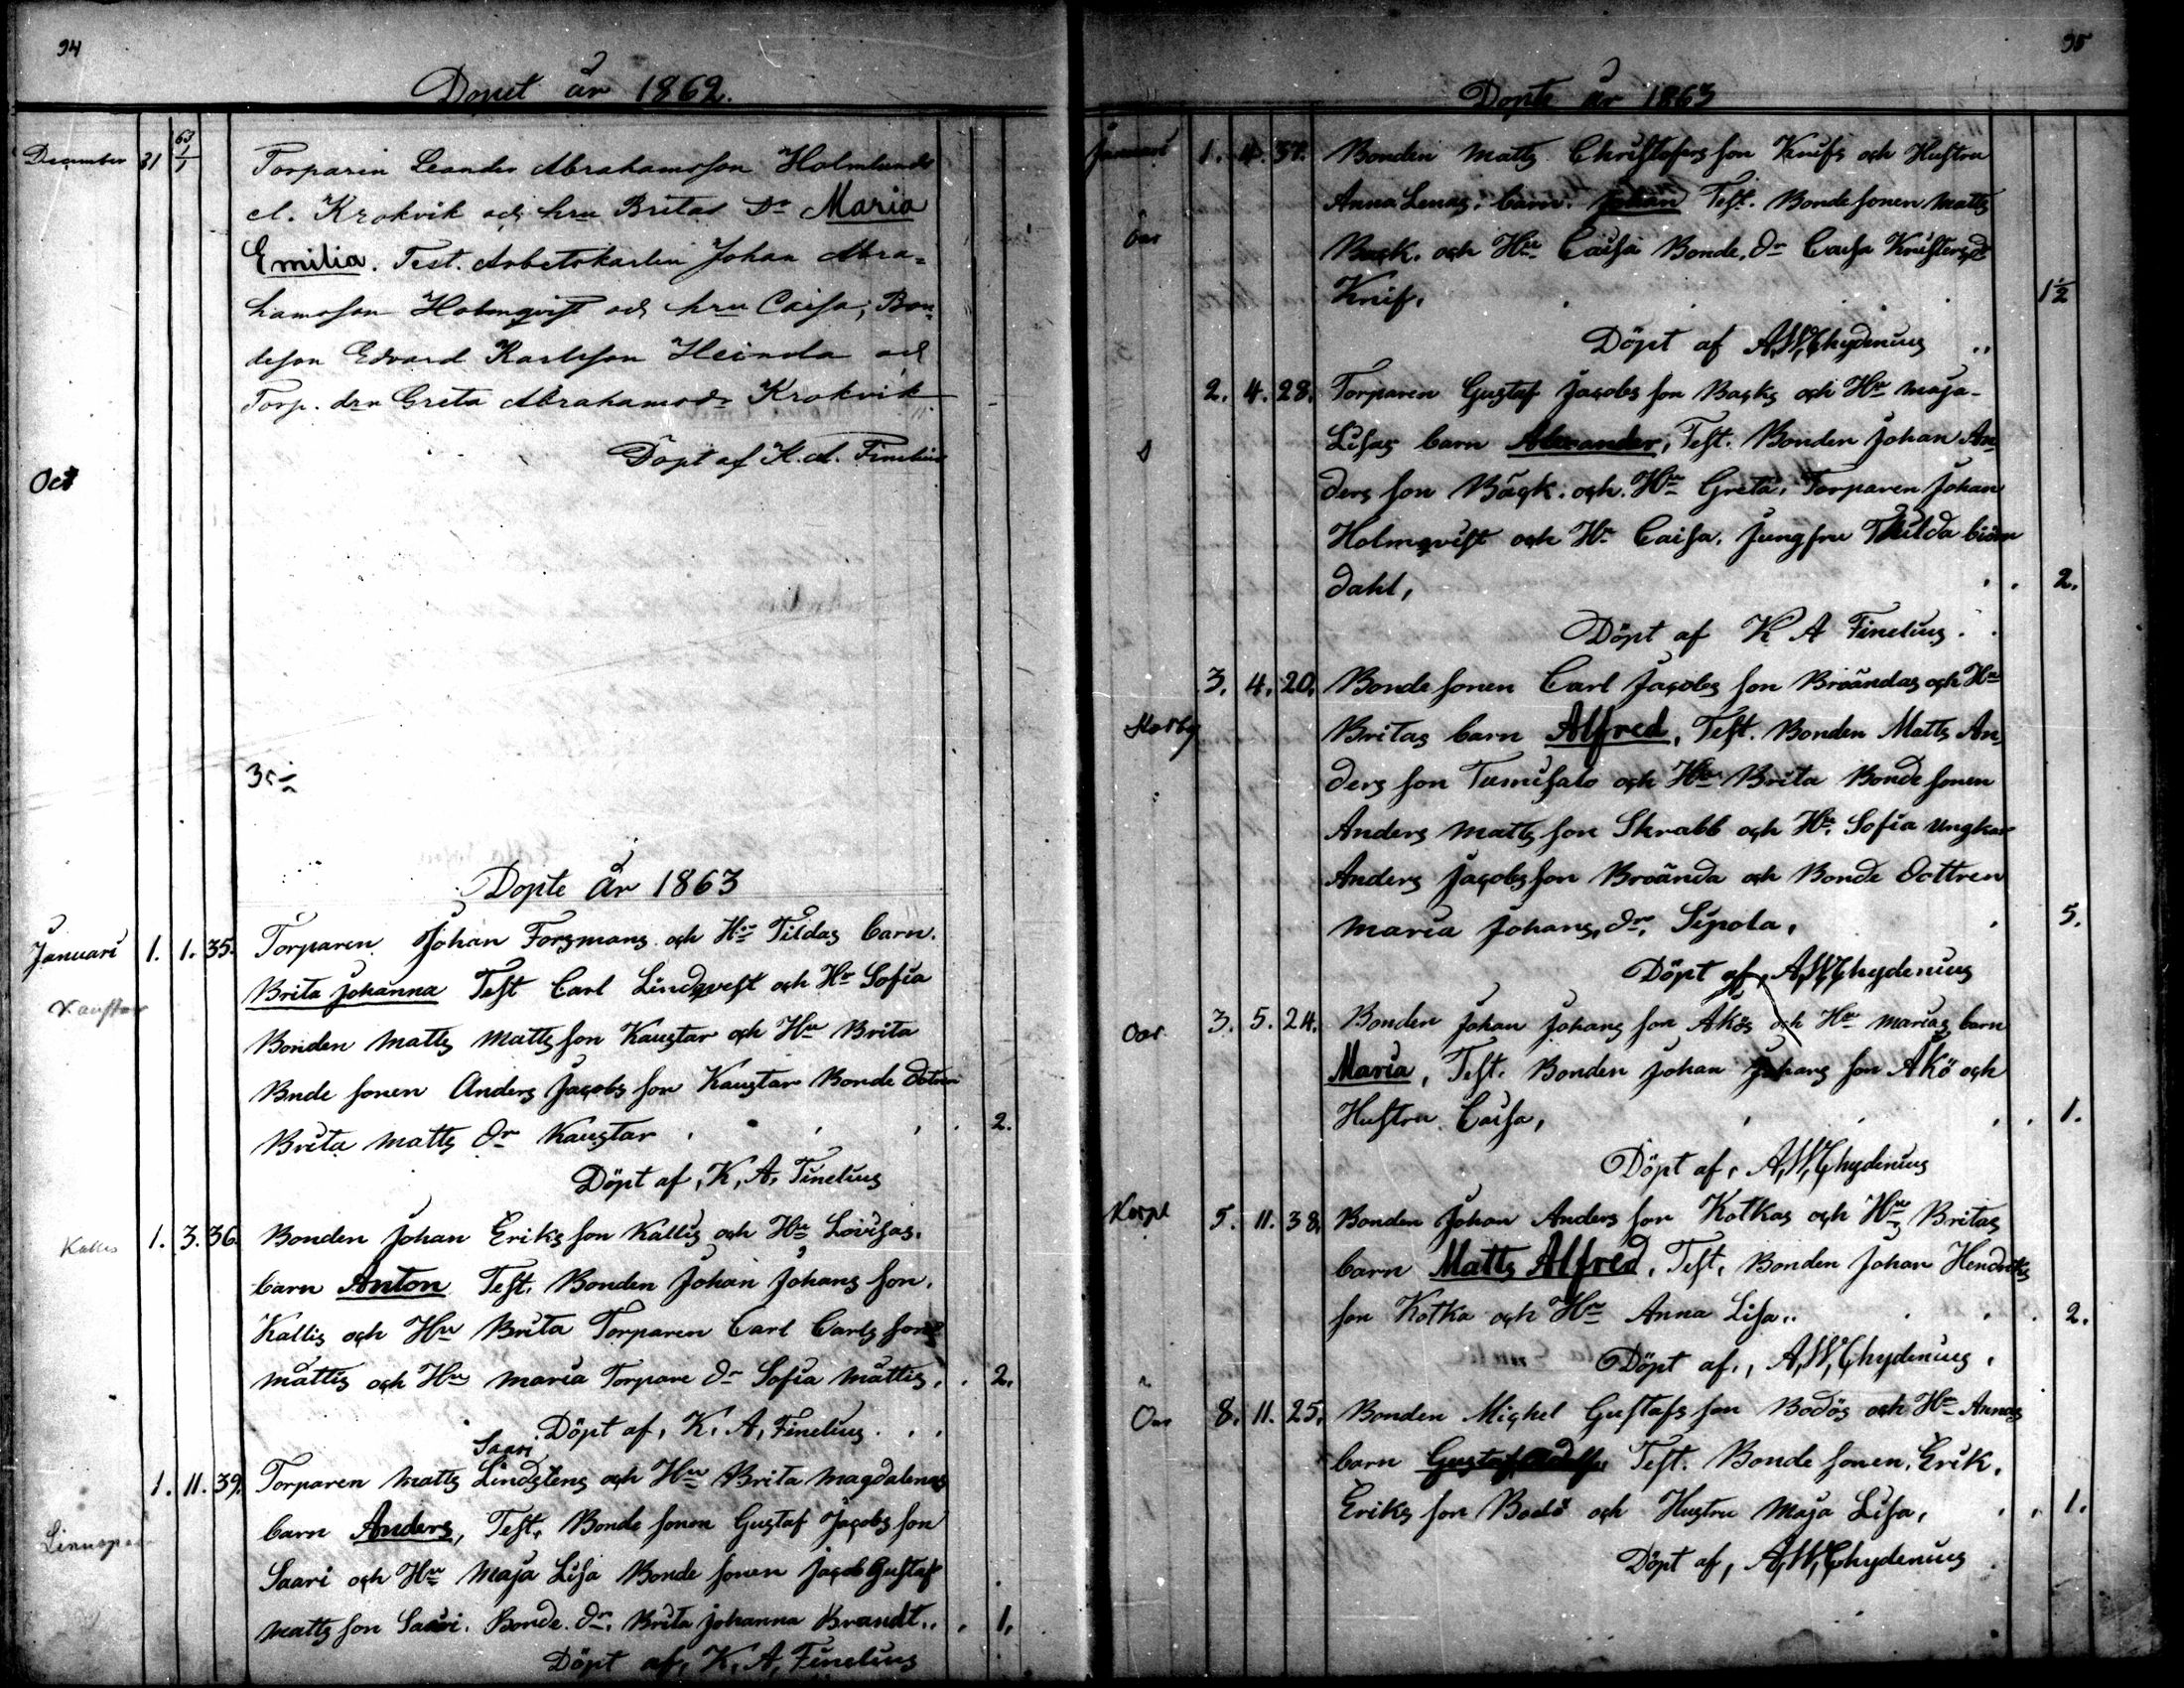 94
Döpet år 1862.
December 31 63 1/1 Torparen Leander Abrahamsson Holmlunds
el. Krokvik och hru Britas Dr Maria
Emilia. Test. Arbetskarlen Johan Abra=
hamsson Holmqvist och hru Caisa; Bon=
deson Edvard Karlsson Heinola och
Torp. drn Greta Abrahamsdr Krokvik
Döpt af K. A. Finelius
Oct
Döpte år 1863
Januari 1. 1. 35. Torparen Johan Forsmans och Hu Tildas barn.
Brita Johanna Test Carl Lindqvist och Hu Sofia
Kaustar
Bonden Matts Matts son Kaustar och Hu Brita
Bnde sonen Anders Jacobs son Kaustar Bonde dotren
Brita Matts dr Kaustar 2.
Döpt af, K, A, Finelius
Kallis 1. 3. 36. Bonden Johan Eriks son Kallis och Hu Lovisas.
barn Anton Test. Bonden Johan Johans son.
Kallis och Hu Brita Torparen Carl Carls son
Mattis och Hu Maria Torpare dr Sofia Mattis, 2.
Döpt af, K. A, Finelius
Saari
1. 11. 39. Torparen Matts Lindstens och Hu Brita Magdalenas
barn Anders, Test, Bonde sonen Gustaf Jacobs son
Saari och Hu Maja Lisa Bonde sonen Jacob Gustaf
Matts son Saari. Bonde. dr. Brita Johanna Brandt.. 1,
Döpt af, K, A, Finelius
95
Döpte år 1863
Januari 1. 4. 37. Bonden Matts Christofers son Knifs och Hustru
Anna Lenas. barn. Johan Test. Bonde sonen Matts
Oar
Back. och Hu Caisa Bonde. dr Caisa Kristersdr
Knif. 1½
Döpt af A,W,Chydenius
2. 4. 28. Torparen Gustaf Jacobs son Backs och Hu Maja-
Lisas barn Alexander, Test. Bonden Johan An
ders son Bäck. och. Hu Greta, Torparen Johan
Holmqvist och Hu Caisa. Jungfru Thilda biörn
dahl, 2.
Döpt af K A Finelius.
3. 4. 20. Bonde sonen Carl Jacobs son Broändas och Hu
Britas barn Alfred, Test. Bonden Matts An
ders son Tumisalo och Hu Brita Bonde sonen
Anders Matts son Skrabb och Hu. Sofia ungkar
Anders Jacobs son Broända och Bonde dottren
Maria Johans, dr. Sipola, 5.
Döpt af, A,W,Chydenius
Oar 3. 5. 24. Bonden Johan Johans son Åkös och Hu Marias barn
Maria, Test. Bonden Johan Johans son Åkö och
Hustru Caisa, 1.
Döpt af, A,W,Chydenius
5. 11. 38. Bonden Johan Anders son Kotkas och Hu Britas
barn Matts Alfred, Test, Bonden Johan Hendriks
son Kotka och Hu Anna Lisa.. 2.
Döpt af,, A,W,Chydenius,
Oar 8. 11. 25. Bonden Michel Gustafs son Bodös och Hu Annas
barn Gustaf Test. Bonde sonen. Erik.
Eriks son Bodö och Hustru Maja Lisa, 1.
Döpt af, A,W,Chydenius